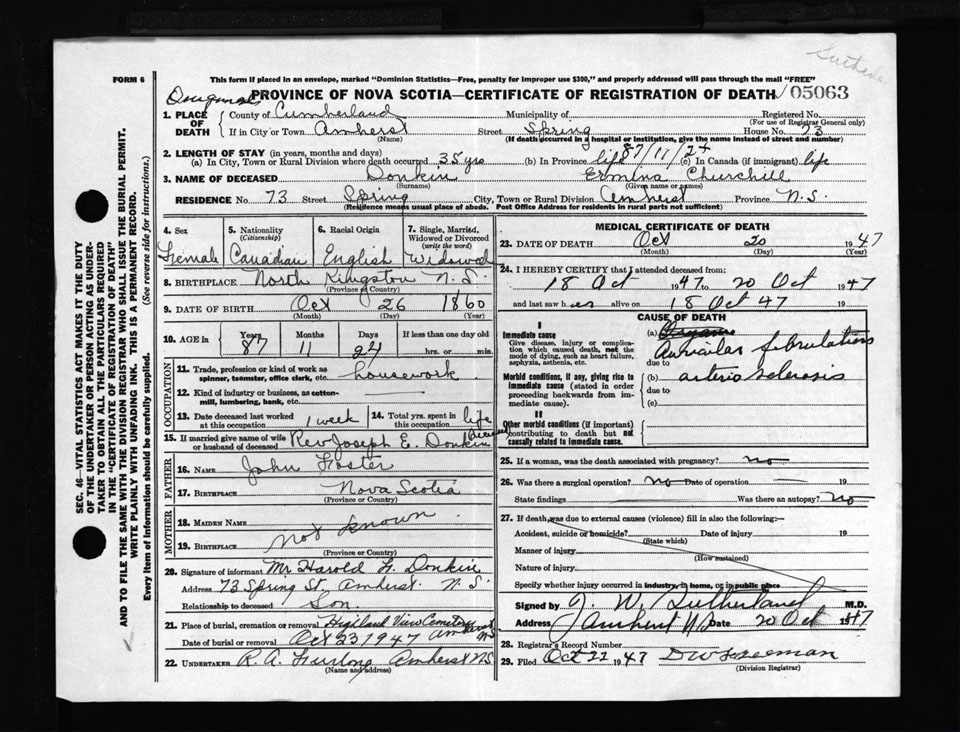 FORM 6
This form if placed in an envelope, marked "Dominion Statistics—Free, penalty for improper use $300," and properly addressed will pass through the mail "FREE"
PROVINCE OF NOVA SCOTIA—CERTIFICATE OF REGISTRATION OF DEATH 05063
1. PLACE OF DEATH
County of Cumberland Municipality of Registered No.
(For use of Registrar General only)
If in City or Town Amherst Street Spring House No. 73
(Name) (If death occurred in a hospital or institution, give the name instead of street and number)
2. LENGTH OF STAY (in years, months and days) 87/11/24
(a) In City, Town or Rural Division where death occurred 35 yrs (b) In Province life (c) In Canada (if immigrant) life
3. NAME OF DECEASED Donkin Ermina Churchill
(Surname) (Given name or names)
RESIDENCE No. 73 Street Spring City, Town or Rural Division Amherst Province N.S.
(Residence means usual place of abode. Post Office Address for residents in rural parts not sufficient)
4. Sex 5. Nationality (Citizenship) 6. Racial Origin 7. Single, Married, Widowed or Divorced (write the word)
Female Canadian English Widowed
8. BIRTHPLACE North Kingston N.S.
(Province or Country)
9. DATE OF BIRTH Oct 26 1860
(Month) (Day) (Year)
10. AGE in Years Months Days If less than one day old
87 11 24 hrs. or min.
OCCUPATION
11. Trade, profession or kind of work as spinner, teamster, office clerk, etc. housework
12. Kind of industry or business, as cotton-mill, lumbering, bank, etc.
13. Date deceased last worked at this occupation 1 week 14. Total yrs. spent in this occupation life
15. If married give name of wife or husband of deceased Rev Joseph E. Donkin
FATHER
16. NAME John Foster
17. BIRTHPLACE Nova Scotia
(Province or Country)
MOTHER
18. MAIDEN NAME
not known
19. BIRTHPLACE
(Province or Country)
20. Signature of informant Mr Harold F. Donkin
Address 73 Spring St. Amherst N.S.
Relationship to deceased Son.
21. Place of burial, cremation or removal Highland View Cemetery Amherst NS
Date of burial or removal Oct 23 1947
22. UNDERTAKER R. A. Furlong Amherst N.S.
(Name and address)
MEDICAL CERTIFICATE OF DEATH
23. DATE OF DEATH Oct 20 1947
(Month) (Day) (Year)
24. I HEREBY CERTIFY that I attended deceased from:
18 Oct 1947 to 20 Oct 1947
and last saw her alive on 18 Oct 47 19
CAUSE OF DEATH
I
Immediate cause (a) Auricular fibrulation
Give disease, injury or complication which caused death, not the mode of dying, such as heart failure, asphyxia, asthenia, etc.
due to
Morbid conditions, if any, giving rise to immediate cause (stated in order proceeding backwards from immediate cause).
(b) arterio sclerosis
due to
(c)
II
Other morbid conditions (if important) contributing to death but not causally related to immediate cause.
25. If a woman, was the death associated with pregnancy? no
26. Was there a surgical operation? no Date of operation 19
State findings Was there an autopsy? No
27. If death was due to external causes (violence) fill in also the following:—
Accident, suicide or homicide? Date of injury 19
(State which)
Manner of injury
(How sustained)
Nature of injury
Specify whether injury occurred in industry, in home, or in public place
Signed by J. W. Sutherland M.D.
Address Amherst N.S Date 20 Oct 1947
28. Registrar's Record Number
29. Filed Oct 22 1947 D W Freeman
(Division Registrar)
SEC. 46—VITAL STATISTICS ACT MAKES IT THE DUTY
OF THE UNDERTAKER OR PERSON ACTING AS UNDER-
TAKER TO OBTAIN ALL THE PARTICULARS REQUIRED
IN THE "CERTIFICATE OF REGISTRATION OF DEATH"
AND TO FILE THE SAME WITH THE DIVISION REGISTRAR WHO SHALL ISSUE THE BURIAL PERMIT.
WRITE PLAINLY WITH UNFADING INK. THIS IS A PERMANENT RECORD.
Every item of information should be carefully supplied. (See reverse side for instructions.)